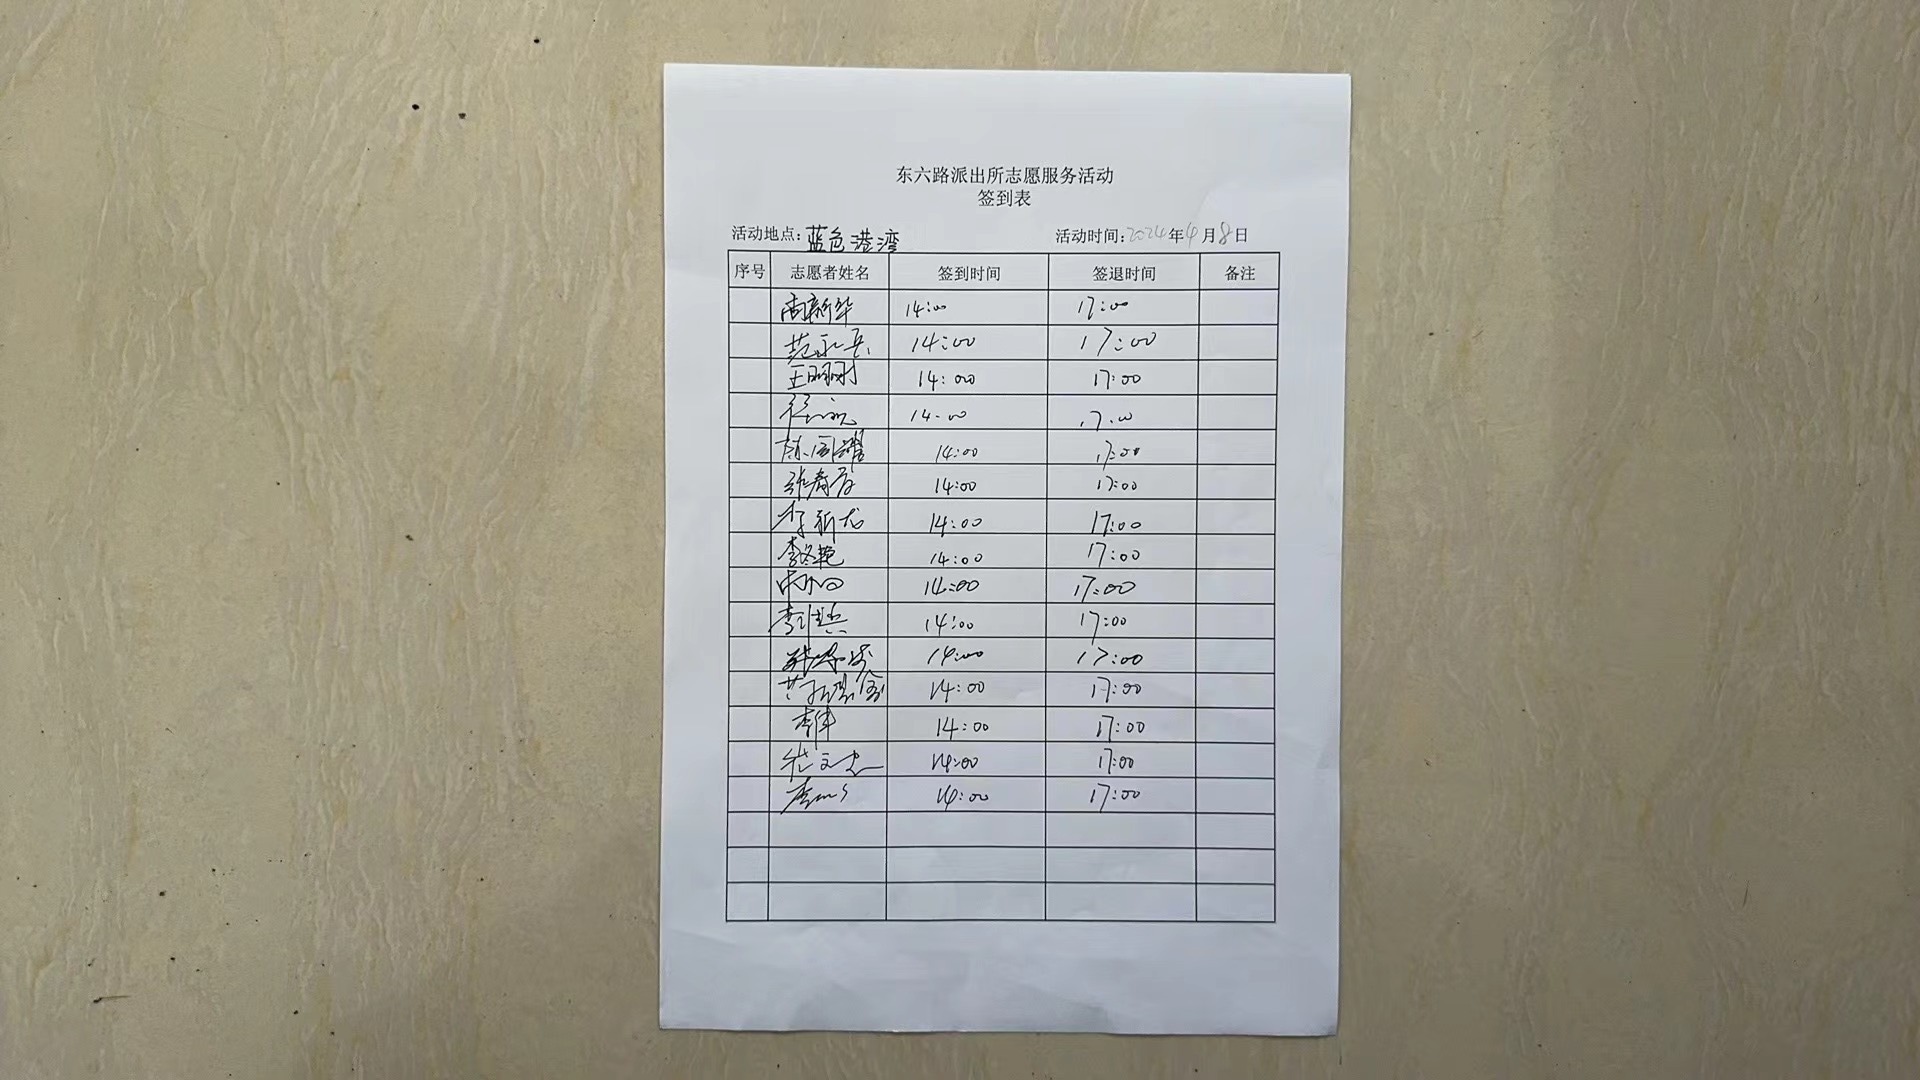 东六路派出所志愿服务活动
签到表
活动地点：蓝色港湾 活动时间：2024年4月8日
序号 志愿者姓名 签到时间 签退时间 备注
尚新华 14:00 17:00
范永兵 14:00 17:00
王明刚 14:00 17:00
14:00 17:00
陈国耀 14:00 17:00
张春芳 14:00 17:00
李新龙 14:00 17:00
李冬艳 14:00 17:00
14:00 17:00
14:00 17:00
14:00 17:00
14:00 17:00
李伟 14:00 17:00
崔文杰 14:00 17:00
14:00 17:00